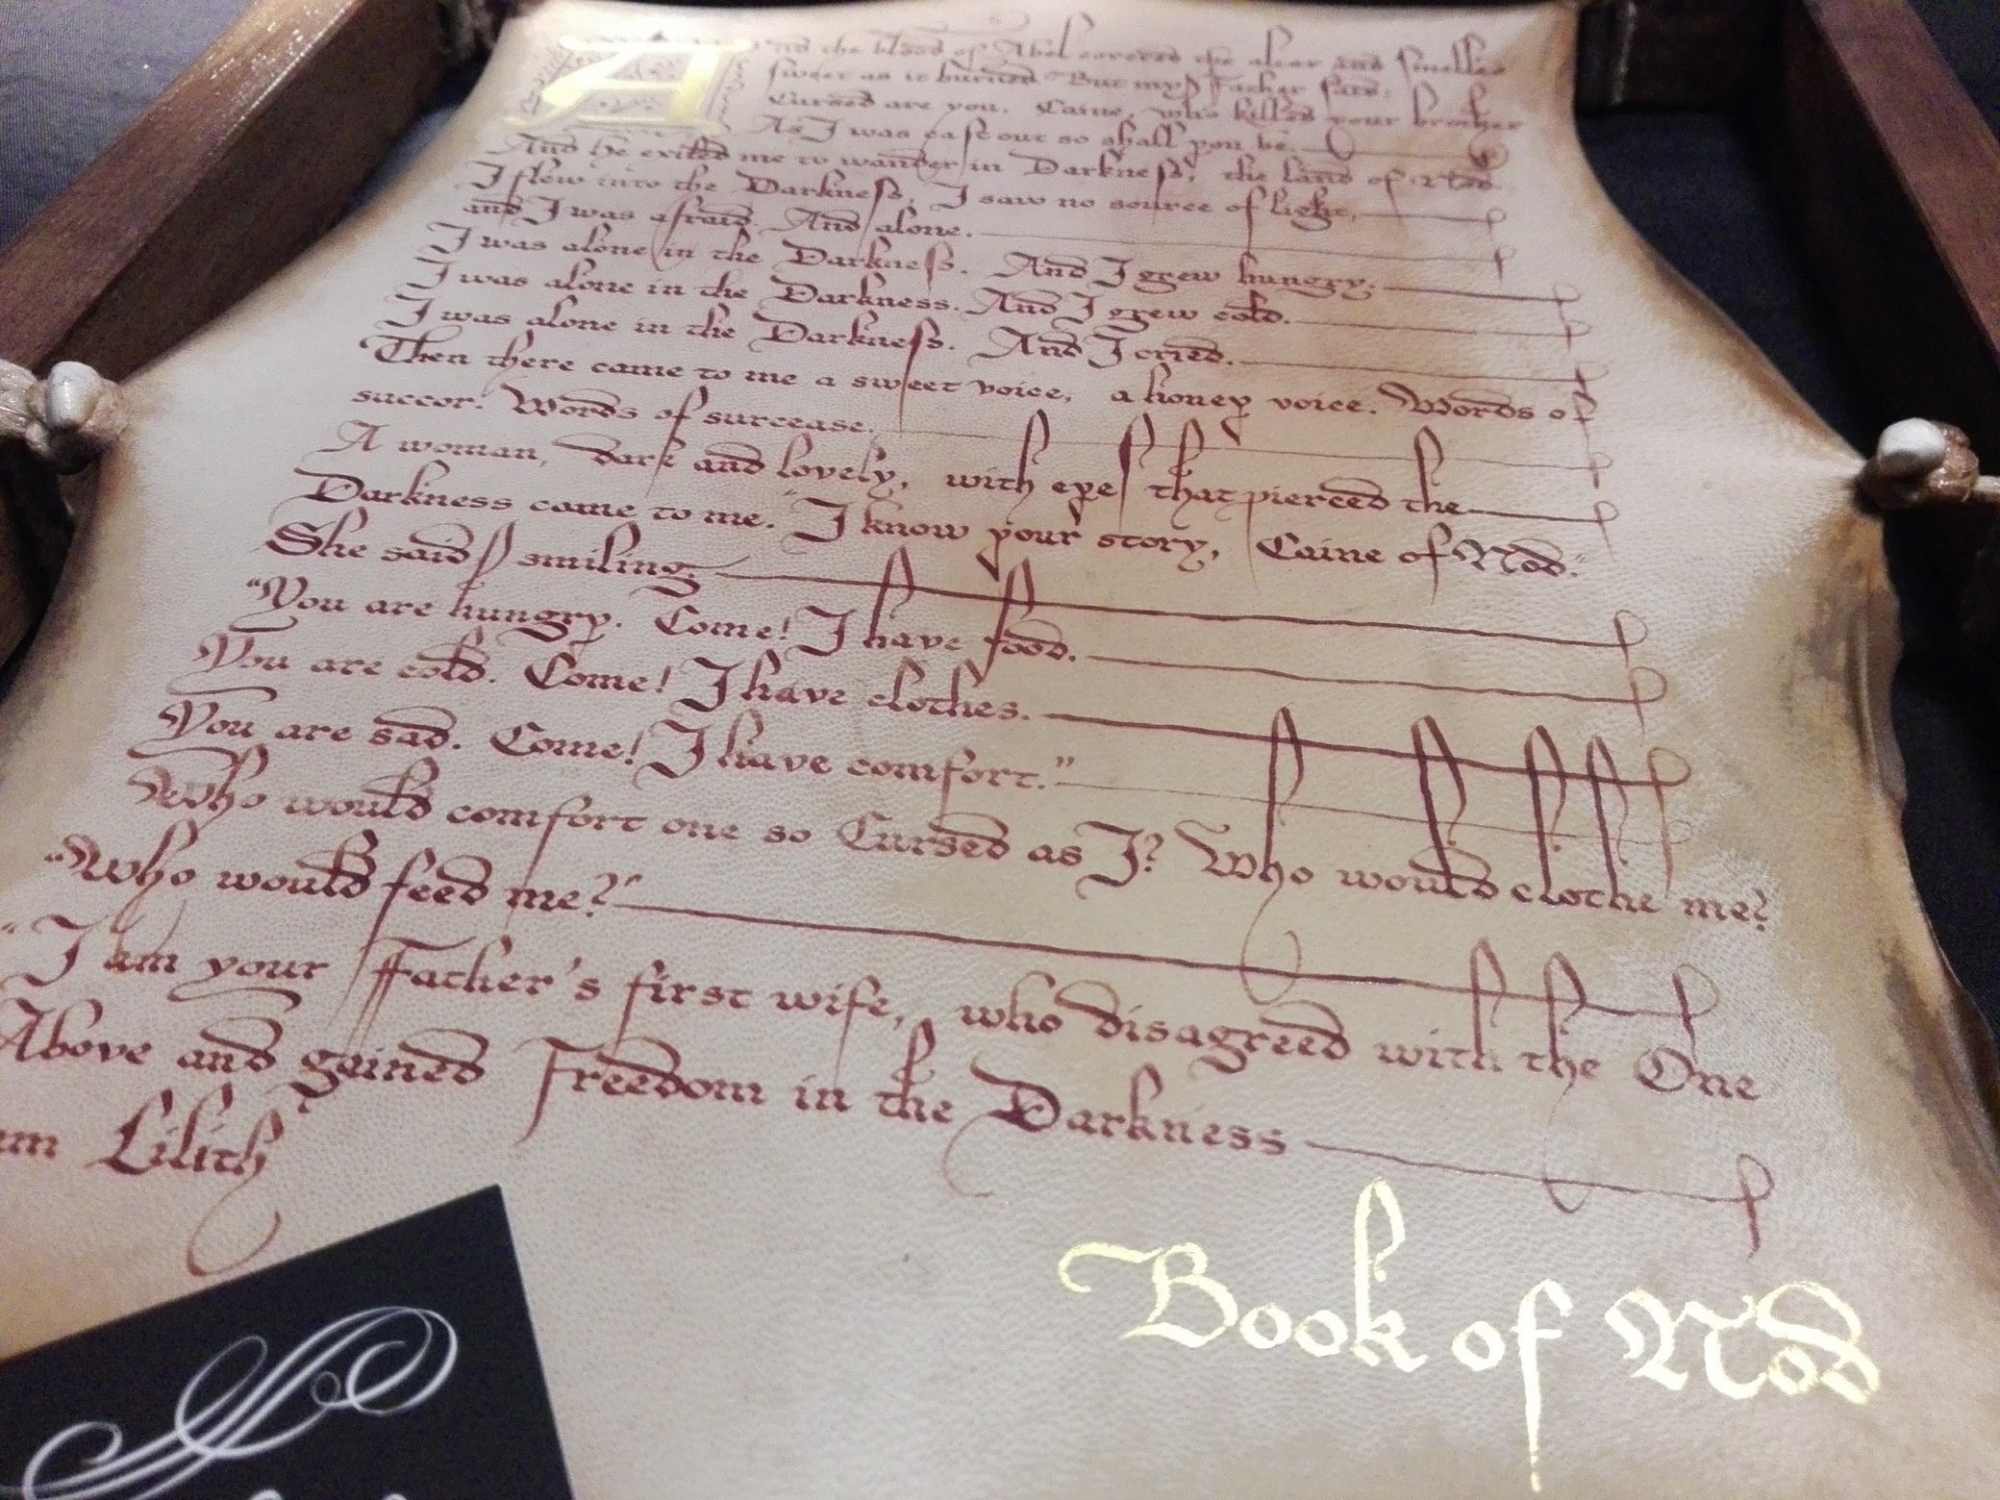 And the blood of Abel covered the altar and smelled
sweet as it burned But my Father said:
Cursed are you, Caine, who killed your brother
As I was cast out so shall you be.
And he exiled me to wander in Darkness, the land of Nod.
I flew into the Darkness, I saw no source of light,
and I was afraid. And alone.
I was alone in the Darkness. And I grew hungry.
I was alone in the Darkness. And I grew cold.
I was alone in the Darkness. And I cried.
Then there came to me a sweet voice, a honey voice. Words of
succor. Words of surcease.
A woman, dark and lovely, with eyes that pierced the
Darkness came to me. "I know your story, Caine of Nod."
She said, smiling.
"You are hungry. Come! I have food.
You are cold. Come! I have clothes.
You are sad. Come! I have comfort."
Who would comfort one so Cursed as I? Who would clothe me?
"Who would feed me?"
"I am your Father's first wife, who disagreed with the One
Above and gained Freedom in the Darkness
Lilith"
Book of Nod